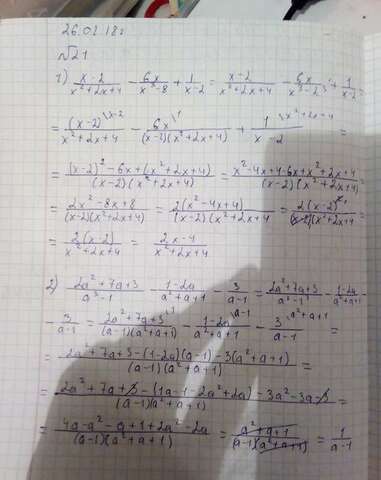 26.01.18г
№21
1) (x-2)/(x²+2x+4) - 6x/(x³-8) + 1/(x-2) = (x-2)/(x²+2x+4) - 6x/(x³-2³) + 1/(x-2) =
= (x-2)^{x-2}/(x²+2x+4) - 6x^{1}/((x-2)(x²+2x+4)) + 1^{x²+2x+4}/(x-2) =
= ((x-2)²-6x+(x²+2x+4))/((x-2)(x²+2x+4)) = (x²-4x+4-6x+x²+2x+4)/((x-2)(x²+2x+4)) =
= (2x²-8x+8)/((x-2)(x²+2x+4)) = 2(x²-4x+4)/((x-2)(x²+2x+4)) = 2(x-2)²/((x-2)(x²+2x+4)) =
= 2(x-2)/(x²+2x+4) = (2x-4)/(x²+2x+4)
2) (2a²+7a+3)/(a³-1) - (1-2a)/(a²+a+1) - 3/(a-1) = (2a²+7a+3)/(a³-1³) - (1-2a)/(a²+a+1) -
- 3/(a-1) = (2a²+7a+3)^{1}/((a-1)(a²+a+1)) - (1-2a)^{a-1}/(a²+a+1) - 3^{a²+a+1}/(a-1) =
= (2a²+7a+3-(1-2a)(a-1)-3(a²+a+1))/((a-1)(a²+a+1)) =
= (2a²+7a+3-(1a-1-2a²+2a)-3a²-3a-3)/((a-1)(a²+a+1)) =
= (4a-a²-a+1+2a²-2a)/((a-1)(a²+a+1)) = (a²+a+1)/((a-1)(a²+a+1)) = 1/(a-1)